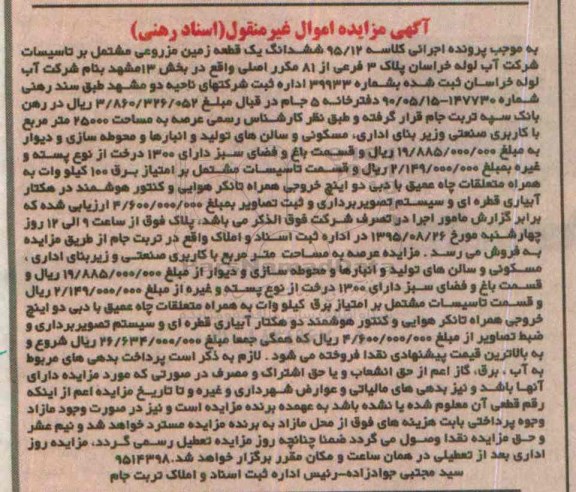 آگهی مزایده اموال غیرمنقول(اسناد رهنی)
به موجب پرونده اجرائی کلاسه ۹۵/۱۲ ششدانگ یک قطعه زمین مزروعی مشتمل بر تاسیسات
شرکت آب لوله خراسان پلاک ۳ فرعی از ۸۱ مکرر اصلی واقع در بخش ۱۳مشهد بنام شرکت آب
لوله خراسان ثبت شده بشماره ۳۹۹۳۳ اداره ثبت شرکتهای ناحیه دو مشهد طبق سند رهنی
شماره ۱۴۷۷۳۰-۹۰/۰۵/۱۵ دفترخانه ۵ جام در قبال مبلغ ۳/۸۶۰/۳۲۶/۰۵۲ ریال در رهن
بانک سپه تربت جام قرار گرفته و طبق نظر کارشناس رسمی عرصه به مساحت ۲۵۰۰۰ متر مربع
با کاربری صنعتی وزیر بنای اداری، مسکونی و سالن های تولید و انبارها و محوطه سازی و دیوار
به مبلغ ۱۹/۸۸۵/۰۰۰/۰۰۰ ریال و قسمت باغ و فضای سبز دارای ۱۳۰۰ درخت از نوع پسته و
غیره بمبلغ ۲/۱۴۹/۰۰۰/۰۰۰ ریال و قسمت تاسیسات مشتمل بر امتیاز برق ۱۰۰ کیلو وات به
همراه متعلقات چاه عمیق با دبی دو اینچ خروجی همراه تانکر هوایی و کنتور هوشمند در هکتار
آبیاری قطره ای و سیستم تصویربرداری و ثبت تصاویر بمبلغ ۴/۶۰۰/۰۰۰/۰۰۰ ارزیابی شده که
برابر گزارش مامور اجرا در تصرف شرکت فوق الذکر می باشد، پلاک فوق از ساعت ۹ الی ۱۲ روز
چهارشنبه مورخ ۱۳۹۵/۰۸/۲۶ در اداره ثبت اسناد و املاک واقع در تربت جام از طریق مزایده
به فروش می رسد . مزایده عرصه به مساحت متر مربع با کاربری صنعتی و زیربنای اداری ،
مسکونی و سالن های تولید و انبارها و محوطه سازی و دیوار از مبلغ ۱۹/۸۸۵/۰۰۰/۰۰۰ ریال و
قسمت باغ و فضای سبز دارای ۱۳۰۰ درخت از نوع پسته و غیره از مبلغ ۲/۱۴۹/۰۰۰/۰۰۰ ریال
و قسمت تاسیسات مشتمل بر امتیاز برق کیلو وات به همراه متعلقات چاه عمیق با دبی دو اینچ
خروجی همراه تانکر هوایی و کنتور هوشمند دو هکتار آبیاری قطره ای و سیستم تصویربرداری و
ضبط تصاویر از مبلغ ۴/۶۰۰/۰۰۰/۰۰۰ ریال که همگی جمعا مبلغ ۲۶/۶۳۴/۰۰۰/۰۰۰ ریال شروع و
به بالاترین قیمت پیشنهادی نقدا فروخته می شود . لازم به ذکر است پرداخت بدهی های مربوط
به آب ، برق، گاز اعم از حق انشعاب و یا حق اشتراک و مصرف در صورتی که مورد مزایده دارای
آنها باشد و نیز بدهی های مالیاتی و عوارض شهرداری و غیره و تا تاریخ مزایده اعم از اینکه
رقم قطعی آن معلوم شده یا نشده باشد به عهده برنده مزایده است و نیز در صورت وجود مازاد
وجوه پرداختی بابت هزینه های فوق از محل مازاد به برنده مزایده مسترد خواهد شد و نیم عشر
و حق مزایده نقدا وصول می گردد ضمنا چنانچه روز مزایده تعطیل رسمی گردد، مزایده روز
اداری بعد از تعطیلی در همان ساعت و مکان مقرر برگزار خواهد شد.۹۵۱۴۳۹۸
سید مجتبی جوادزاده-رئیس اداره ثبت اسناد و املاک تربت جام